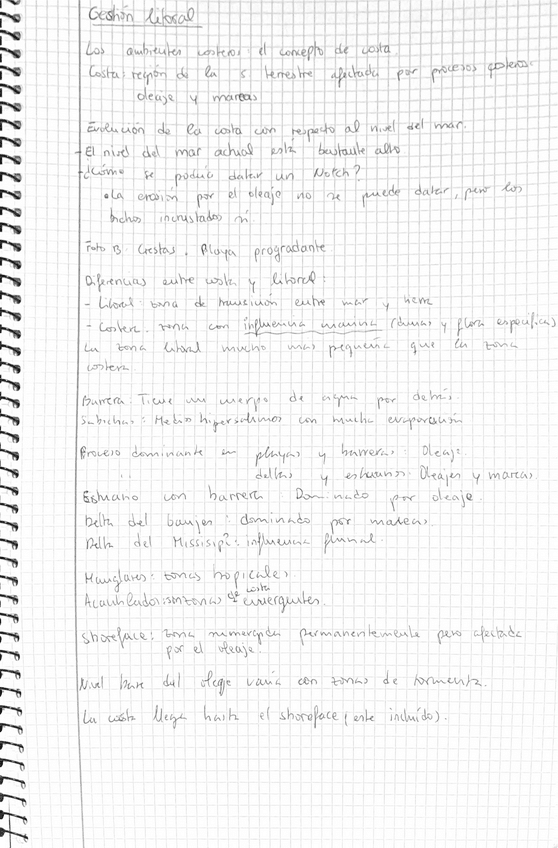 Gestión litoral
Los ambientes costeros: el concepto de costa
Costa: región de la s terrestre afectada por procesos costeros:
oleaje y mareas
Evolución de la costa con respecto al nivel del mar.
- El nivel del mar actual está bastante alto
- ¿Cómo se podría datar un Notch?
• La erosión por el oleaje no se puede datar, pero los
bichos incrustados sí.
Foto B: Crestas. Playa progradante
Diferencias entre costa y litoral:
- Litoral: zona de transición entre mar y tierra
- Costera: zona con influencia marina (dunas y flora específicas)
La zona litoral mucho mas pequeña que la zona
costera.
Barrera: Tiene un cuerpo de agua por detrás.
Medios hipersalinos con mucha evaporación
Proceso dominante en playas y barreras: Oleaje
" deltas y estuarios: Oleajes y mareas.
Estuario con barrera: Dominado por oleaje.
Delta del : dominado por mareas.
Delta del Missisipi: influencia fluvial.
Manglares: zonas tropicales.
zonas de costa emergentes.
Shoreface: zona sumergida permanentemente pero afectada
por el oleaje.
Nivel base del oleaje varía con zonas de tormenta.
La costa llega hasta el shoreface (este incluído).